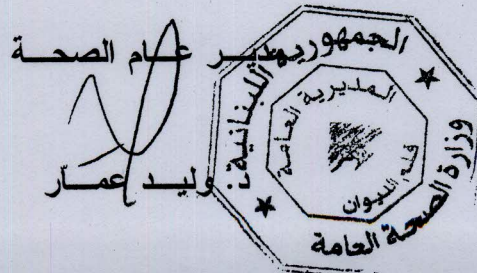 مدير عام الصحة
وليد عمار
الجمهورية اللبنانية
وزارة الصحة العامة
المديرية العامة
الديوان